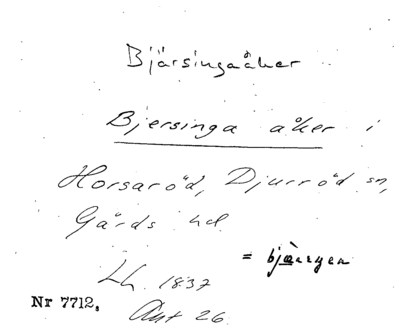 Bjärsingaåker
Bjersinga åker i
Horsaröd, Djurröd sn,
Gärds hd
= bjæ
Lh. 1837
Nr 7712.
Akt 26